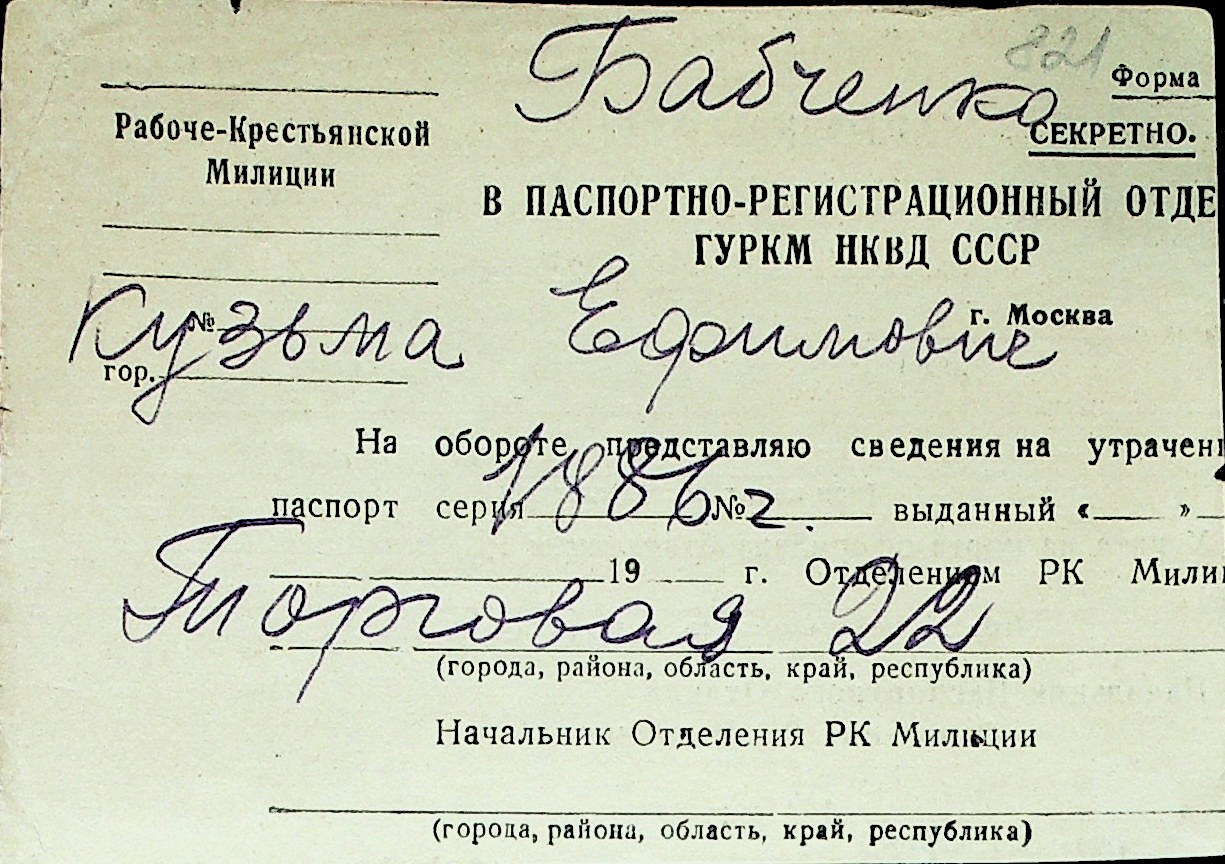 821
Бабченко
Форма
СЕКРЕТНО.
Рабоче-Крестьянской
Милиции
В ПАСПОРТНО-РЕГИСТРАЦИОННЫЙ ОТДЕ
ГУРКМ НКВД СССР
г. Москва
№
Кузьма Ефимович
гор.
На обороте представляю сведения на утрачен
паспорт серия № выданный « »
1886 г.
19 г. Отделением РК Мили
Торговая 22
(города, района, область, край, республика)
Начальник Отделения РК Милиции
(города, района, область, край, республика)